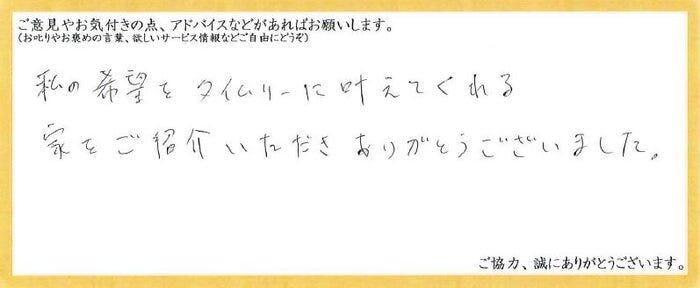 ご意見やお気付きの点、アドバイスなどがあればお願いします。
(お叱りやお褒めの言葉、欲しいサービス情報などご自由にどうぞ)
私の希望をタイムリーに叶えてくれる
家をご紹介いただきありがとうございました。
ご協力、誠にありがとうございます。